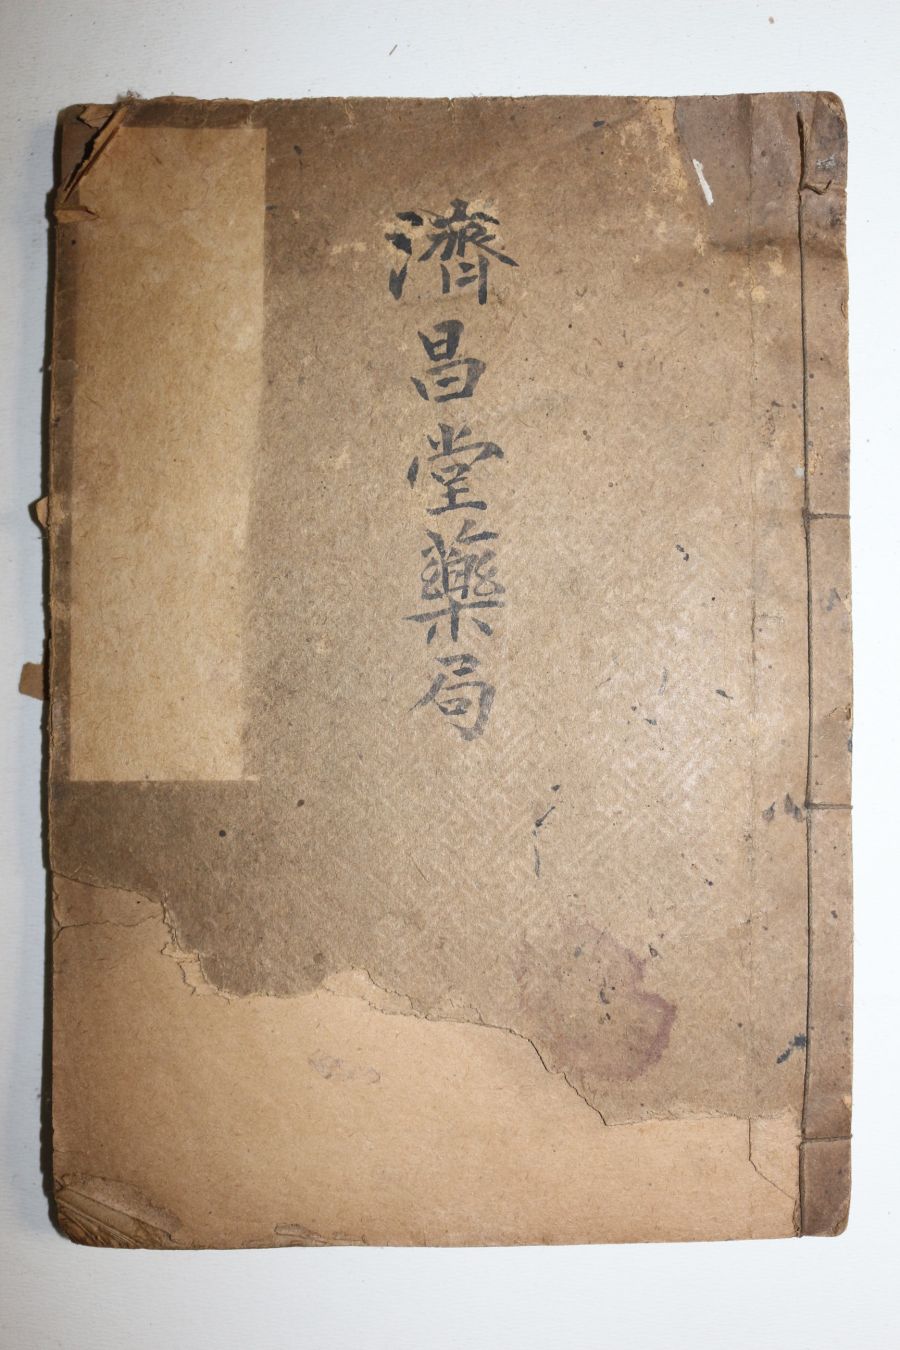 濟昌堂藥局